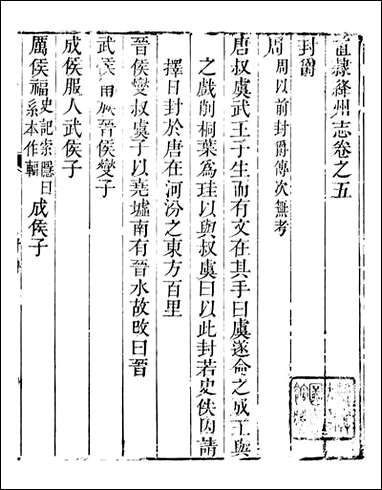 直隸絳州志卷之五
封爵
周 周以前封爵傳次無考
唐叔虞武王子生而有文在其手曰虞遂命之成王與
之戲削桐葉為珪以與叔虞曰以此封若史佚因請
擇日封於唐在河汾之東方百里
晉侯燮叔虞子以堯墟南有晉水故改曰晉
武侯甯族晉侯燮子
成侯服人武侯子
厲侯福 史記索隱曰系本作輻 成侯子